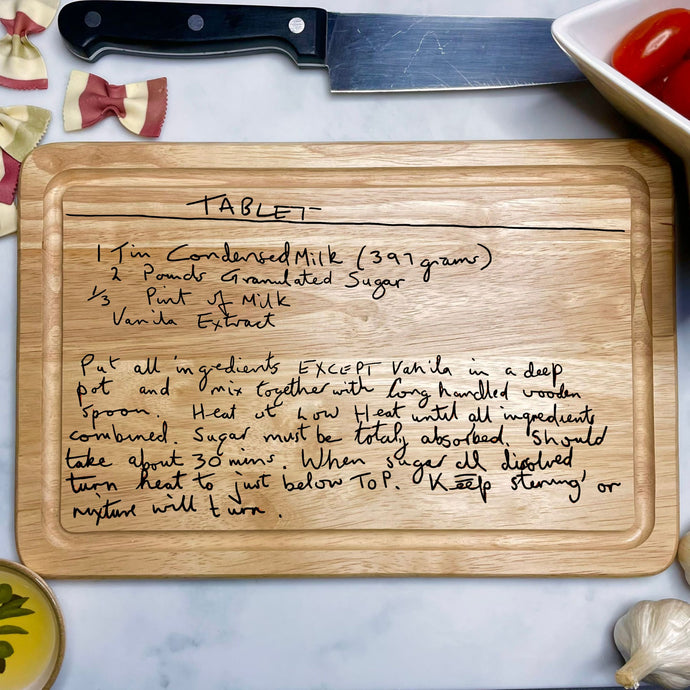 TABLET
1 Tin Condensed Milk (397 grams)
2 Pounds Granulated Sugar
1/3 Pint of Milk
Vanila Extract
Put all ingredients EXCEPT Vanila in a deep
pot and mix together with long handled wooden
spoon. Heat at Low Heat until all ingredients
combined. Sugar must be totally absorbed. Should
take about 30 mins. When sugar all dissolved
turn heat to just below TOP. Keep stirring or
mixture will turn.